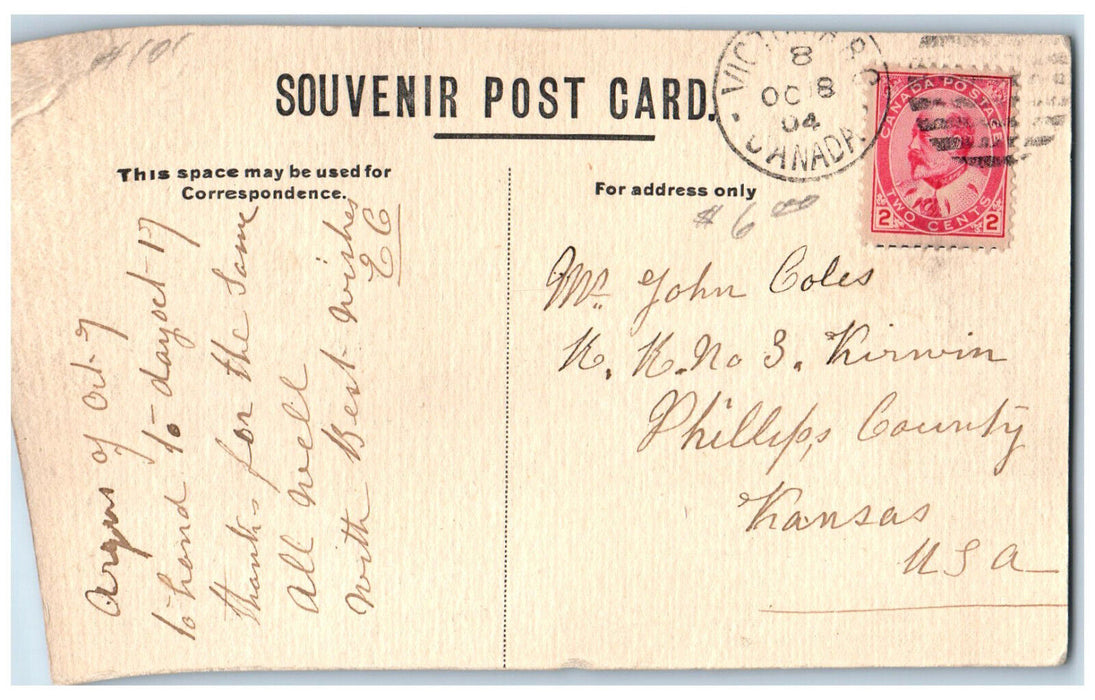 #101
SOUVENIR POST CARD.
This space may be used for
Correspondence.
Argus of Oct. 7
to hand to-day oct-17
Thanks for the same
All well
with Best-wishes
For address only
$6.00
Mr. John Coles
R. R. No 3. Kirwin
Phillips County
Kansas
USA
VICTORIA B.C
8
OC 18
04
CANADA
CANADA POSTAGE
2 TWO CENTS 2